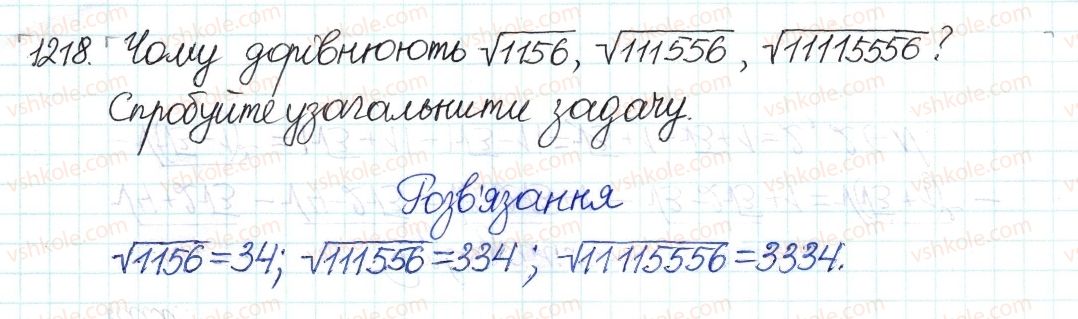 1218. Чому дорівнюють √1156, √111556, √11115556?
Спробуйте узагальнити задачу.
Розв'язання
√1156=34; √111556=334; √11115556=3334.